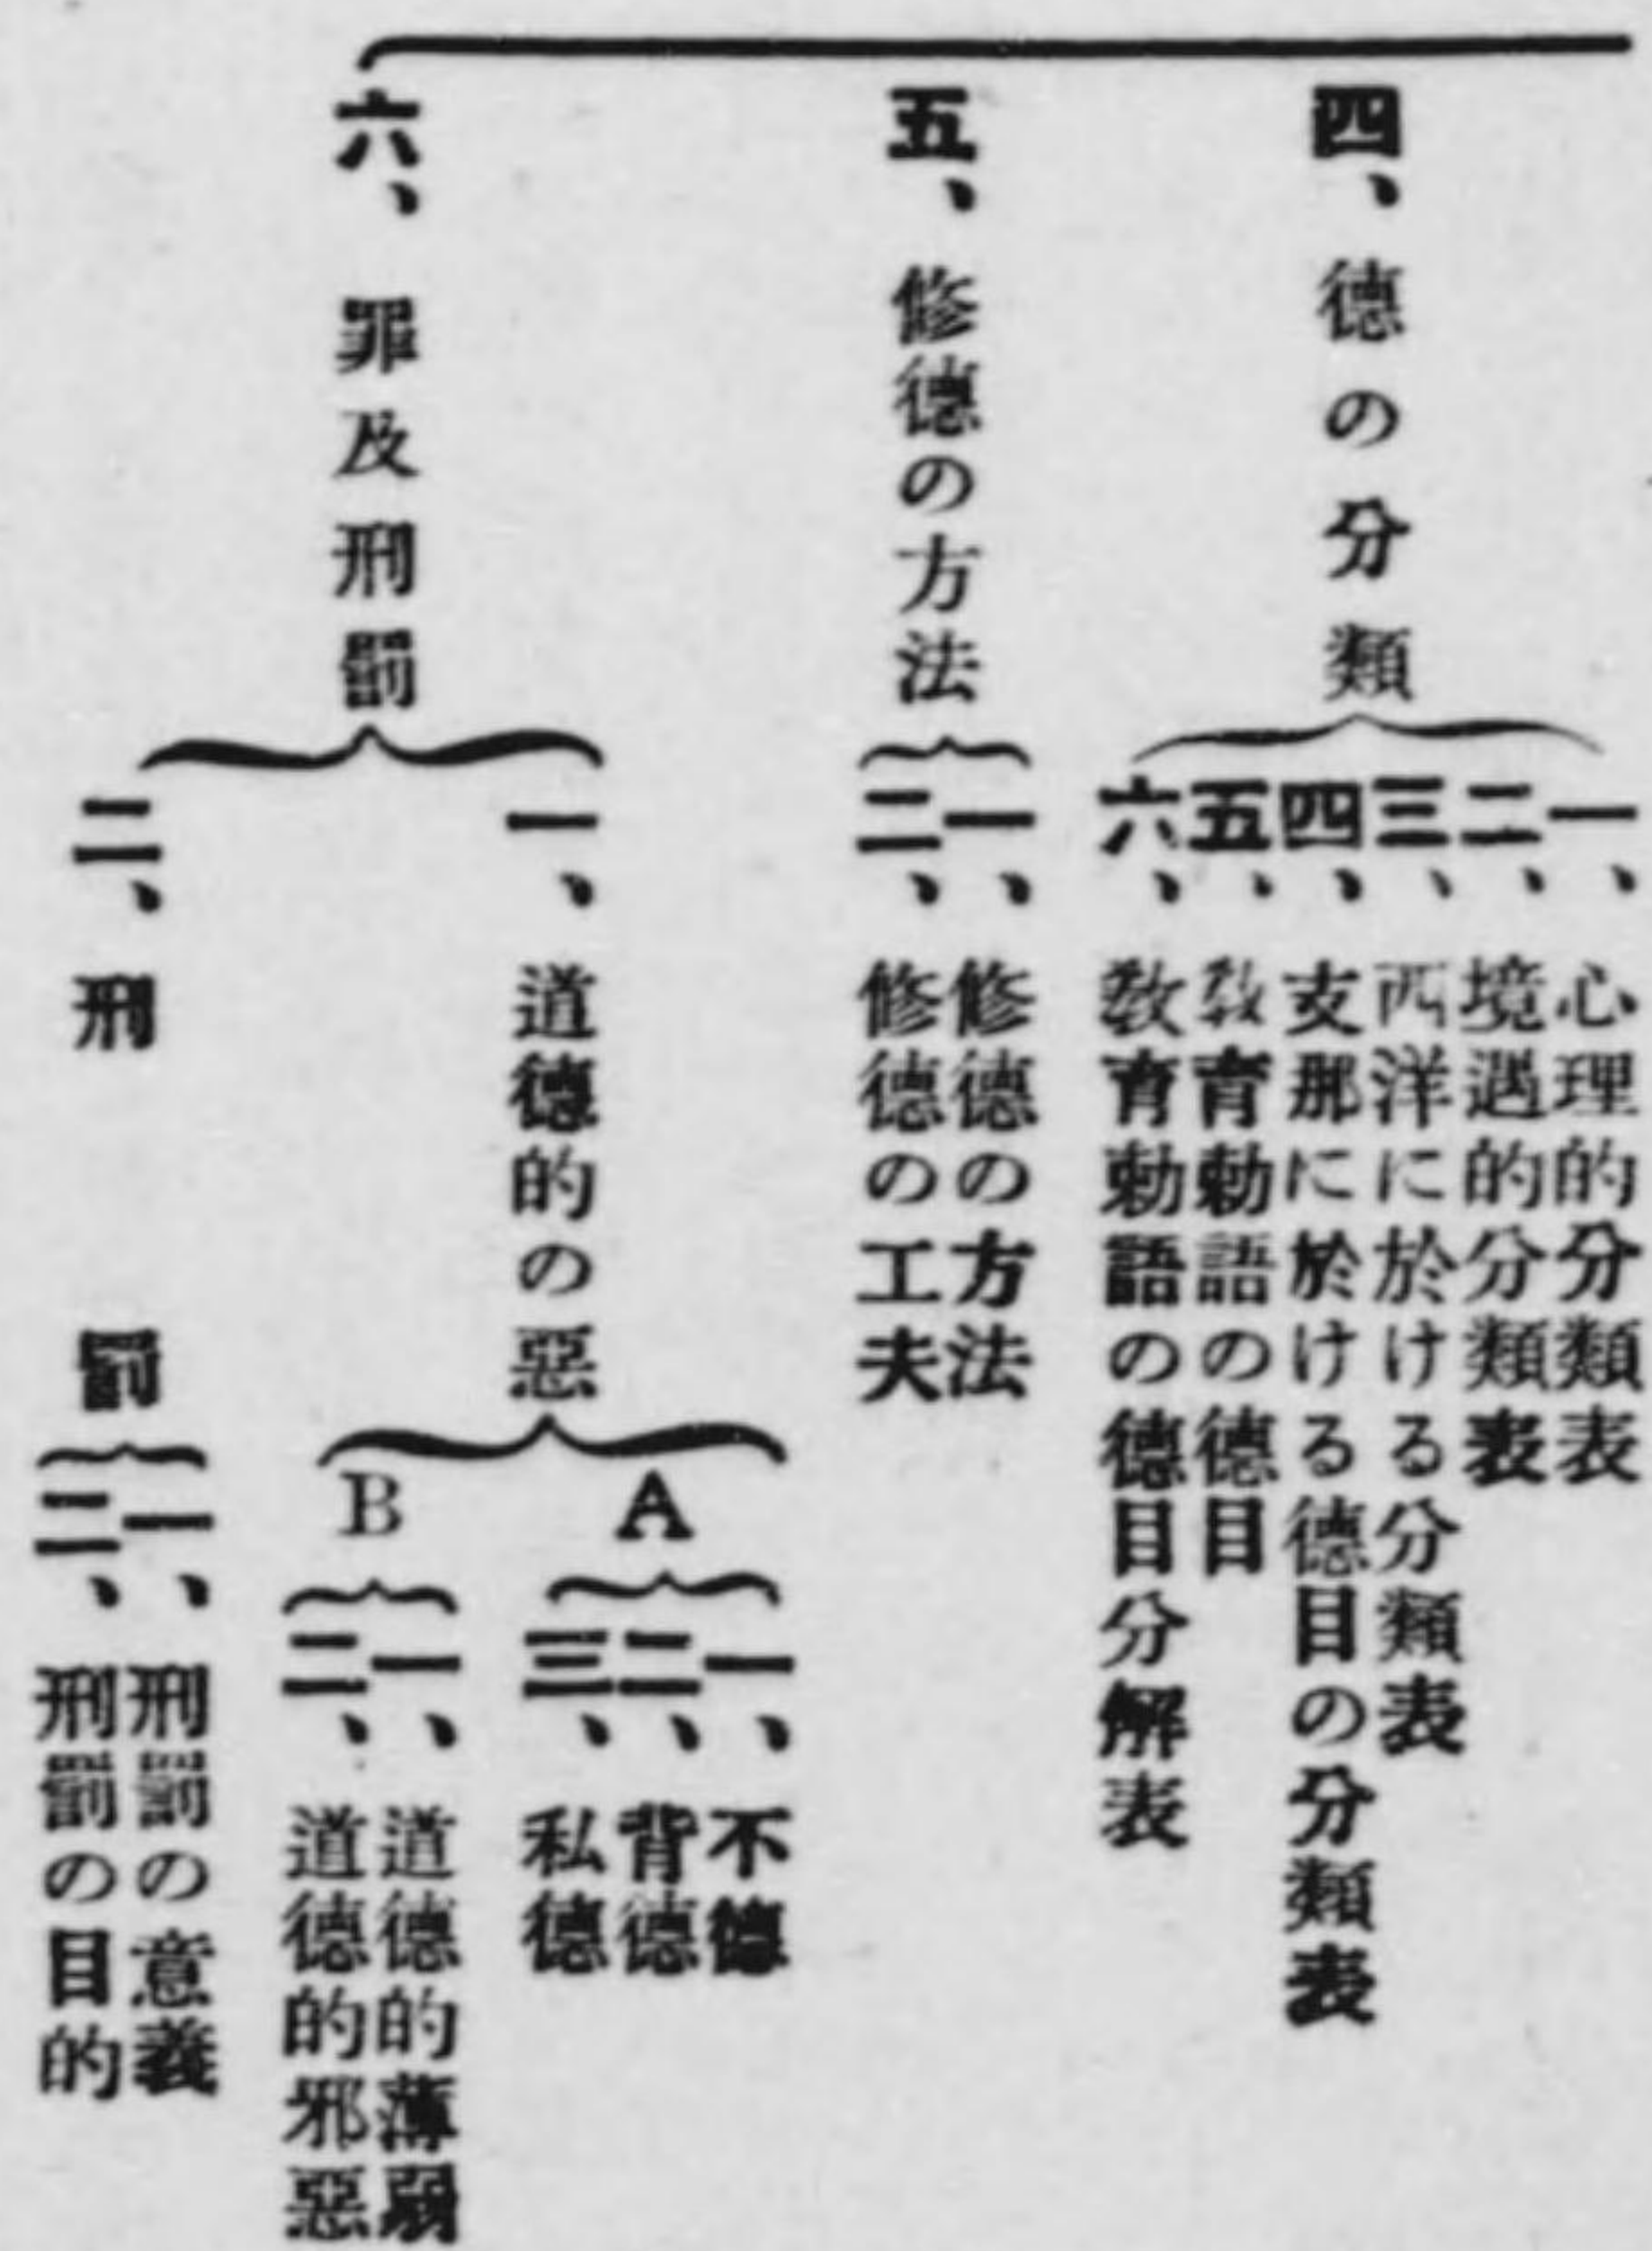 四、德の分類
一、心理的分類表
二、境遇的分類表
三、西洋に於ける分類表
四、支那に於ける德目の分類表
五、敎育勅語の德目
六、敎育勅語の德目分解表
五、修德の方法
一、修德の方法
二、修德の工夫
六、罪及刑罰
一、道德的の惡
A
一、不德
二、背德
三、私德
B
一、道德的薄弱
二、道德的邪惡
二、刑罰
一、刑罰の意義
二、刑罰の目的